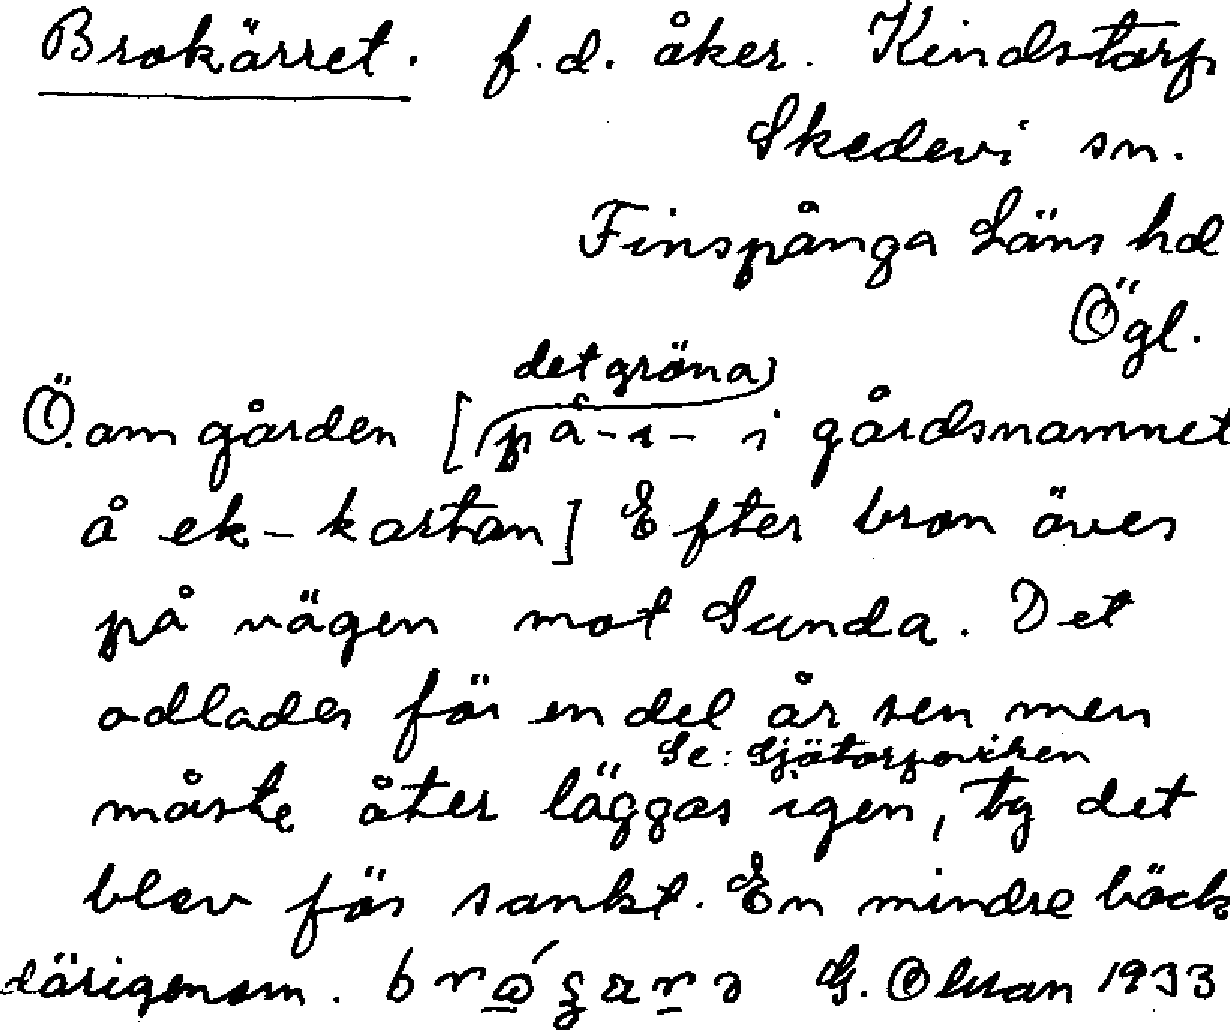 Brokärret. f.d. åker. Kindstorp
Skedevi sn.
Finspånga Läns hd
Ögl.
det gröna
Ö. om gården [på -r- i gårdsnamnet
å ek-kartan] Efter bron över
på vägen mot Sunda. Det
odlades för en del år sen men
Se: Sjötorpviken
måste åter läggas igen, ty det
blev för sankt. En mindre bäck
därigenom. G. Olsson 1933